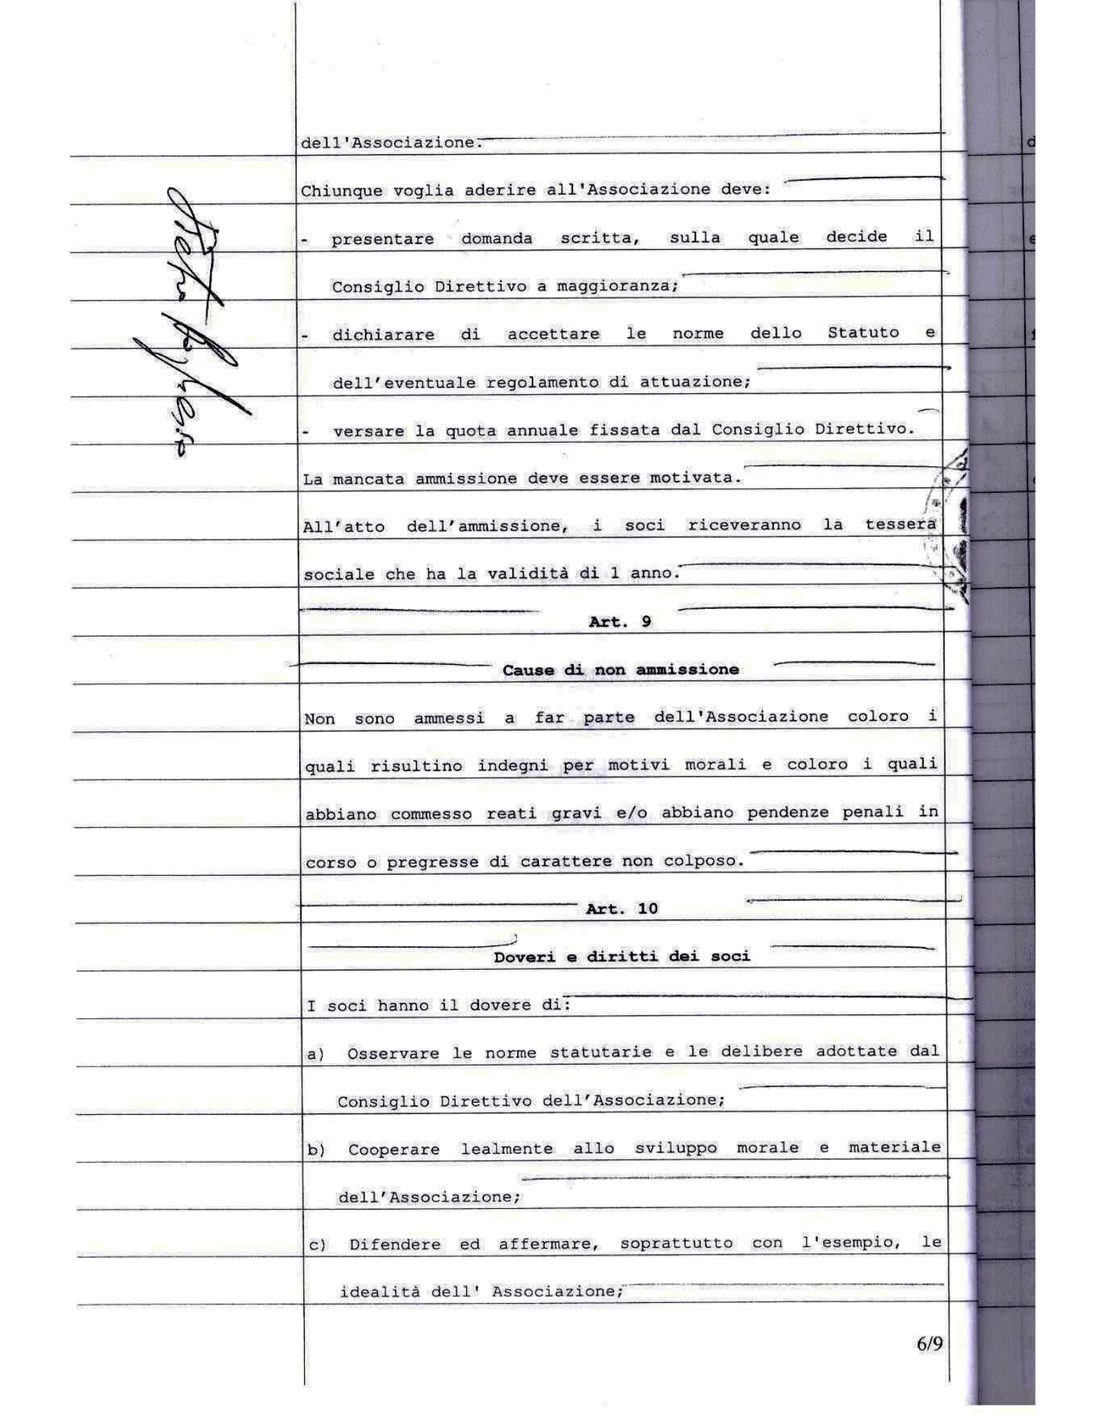 dell'Associazione.
Chiunque voglia aderire all'Associazione deve:
- presentare domanda scritta, sulla quale decide il
Consiglio Direttivo a maggioranza;
- dichiarare di accettare le norme dello Statuto e
dell'eventuale regolamento di attuazione;
- versare la quota annuale fissata dal Consiglio Direttivo.
La mancata ammissione deve essere motivata.
All'atto dell'ammissione, i soci riceveranno la tessera
sociale che ha la validità di 1 anno.
Art. 9
Cause di non ammissione
Non sono ammessi a far parte dell'Associazione coloro i
quali risultino indegni per motivi morali e coloro i quali
abbiano commesso reati gravi e/o abbiano pendenze penali in
corso o pregresse di carattere non colposo.
Art. 10
Doveri e diritti dei soci
I soci hanno il dovere di:
a) Osservare le norme statutarie e le delibere adottate dal
Consiglio Direttivo dell'Associazione;
b) Cooperare lealmente allo sviluppo morale e materiale
dell'Associazione;
c) Difendere ed affermare, soprattutto con l'esempio, le
idealità dell' Associazione;
6/9